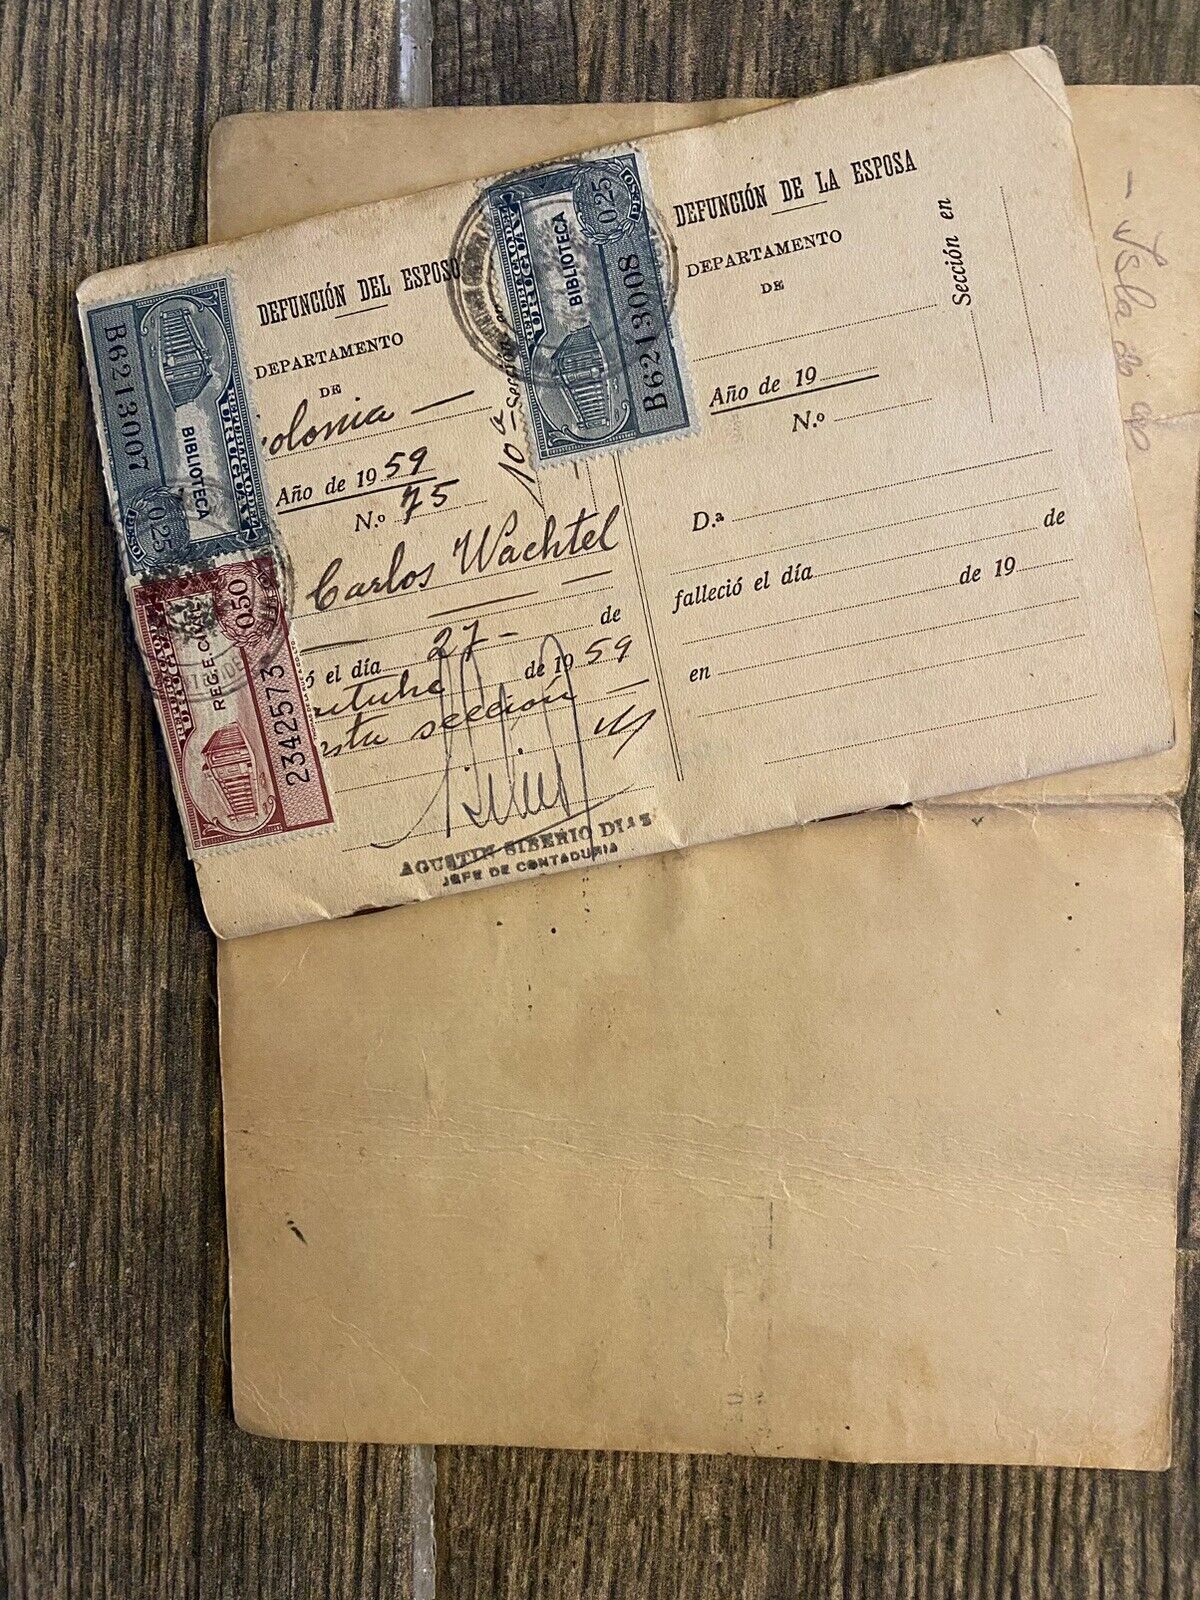 DEFUNCIÓN DEL ESPOSO
DEPARTAMENTO
DE
olonia
Año de 1959
N.º 75
10ª Sección
Carlos Wachtel
ó el día 27 de
de 1959
sección
AGUSTIN SIBERIO DIAZ
JEFE DE CONTADURIA
B6213007
BIBLIOTECA
URUGUAY
0.25
PESO
0.50
REG. E. CIVIL
2342573
BIBLIOTECA
0.25
PESO
B6213008
DEFUNCIÓN DE LA ESPOSA
DEPARTAMENTO
DE
Sección en
Año de 19
N.º
D.ª
falleció el día de
de 19
en